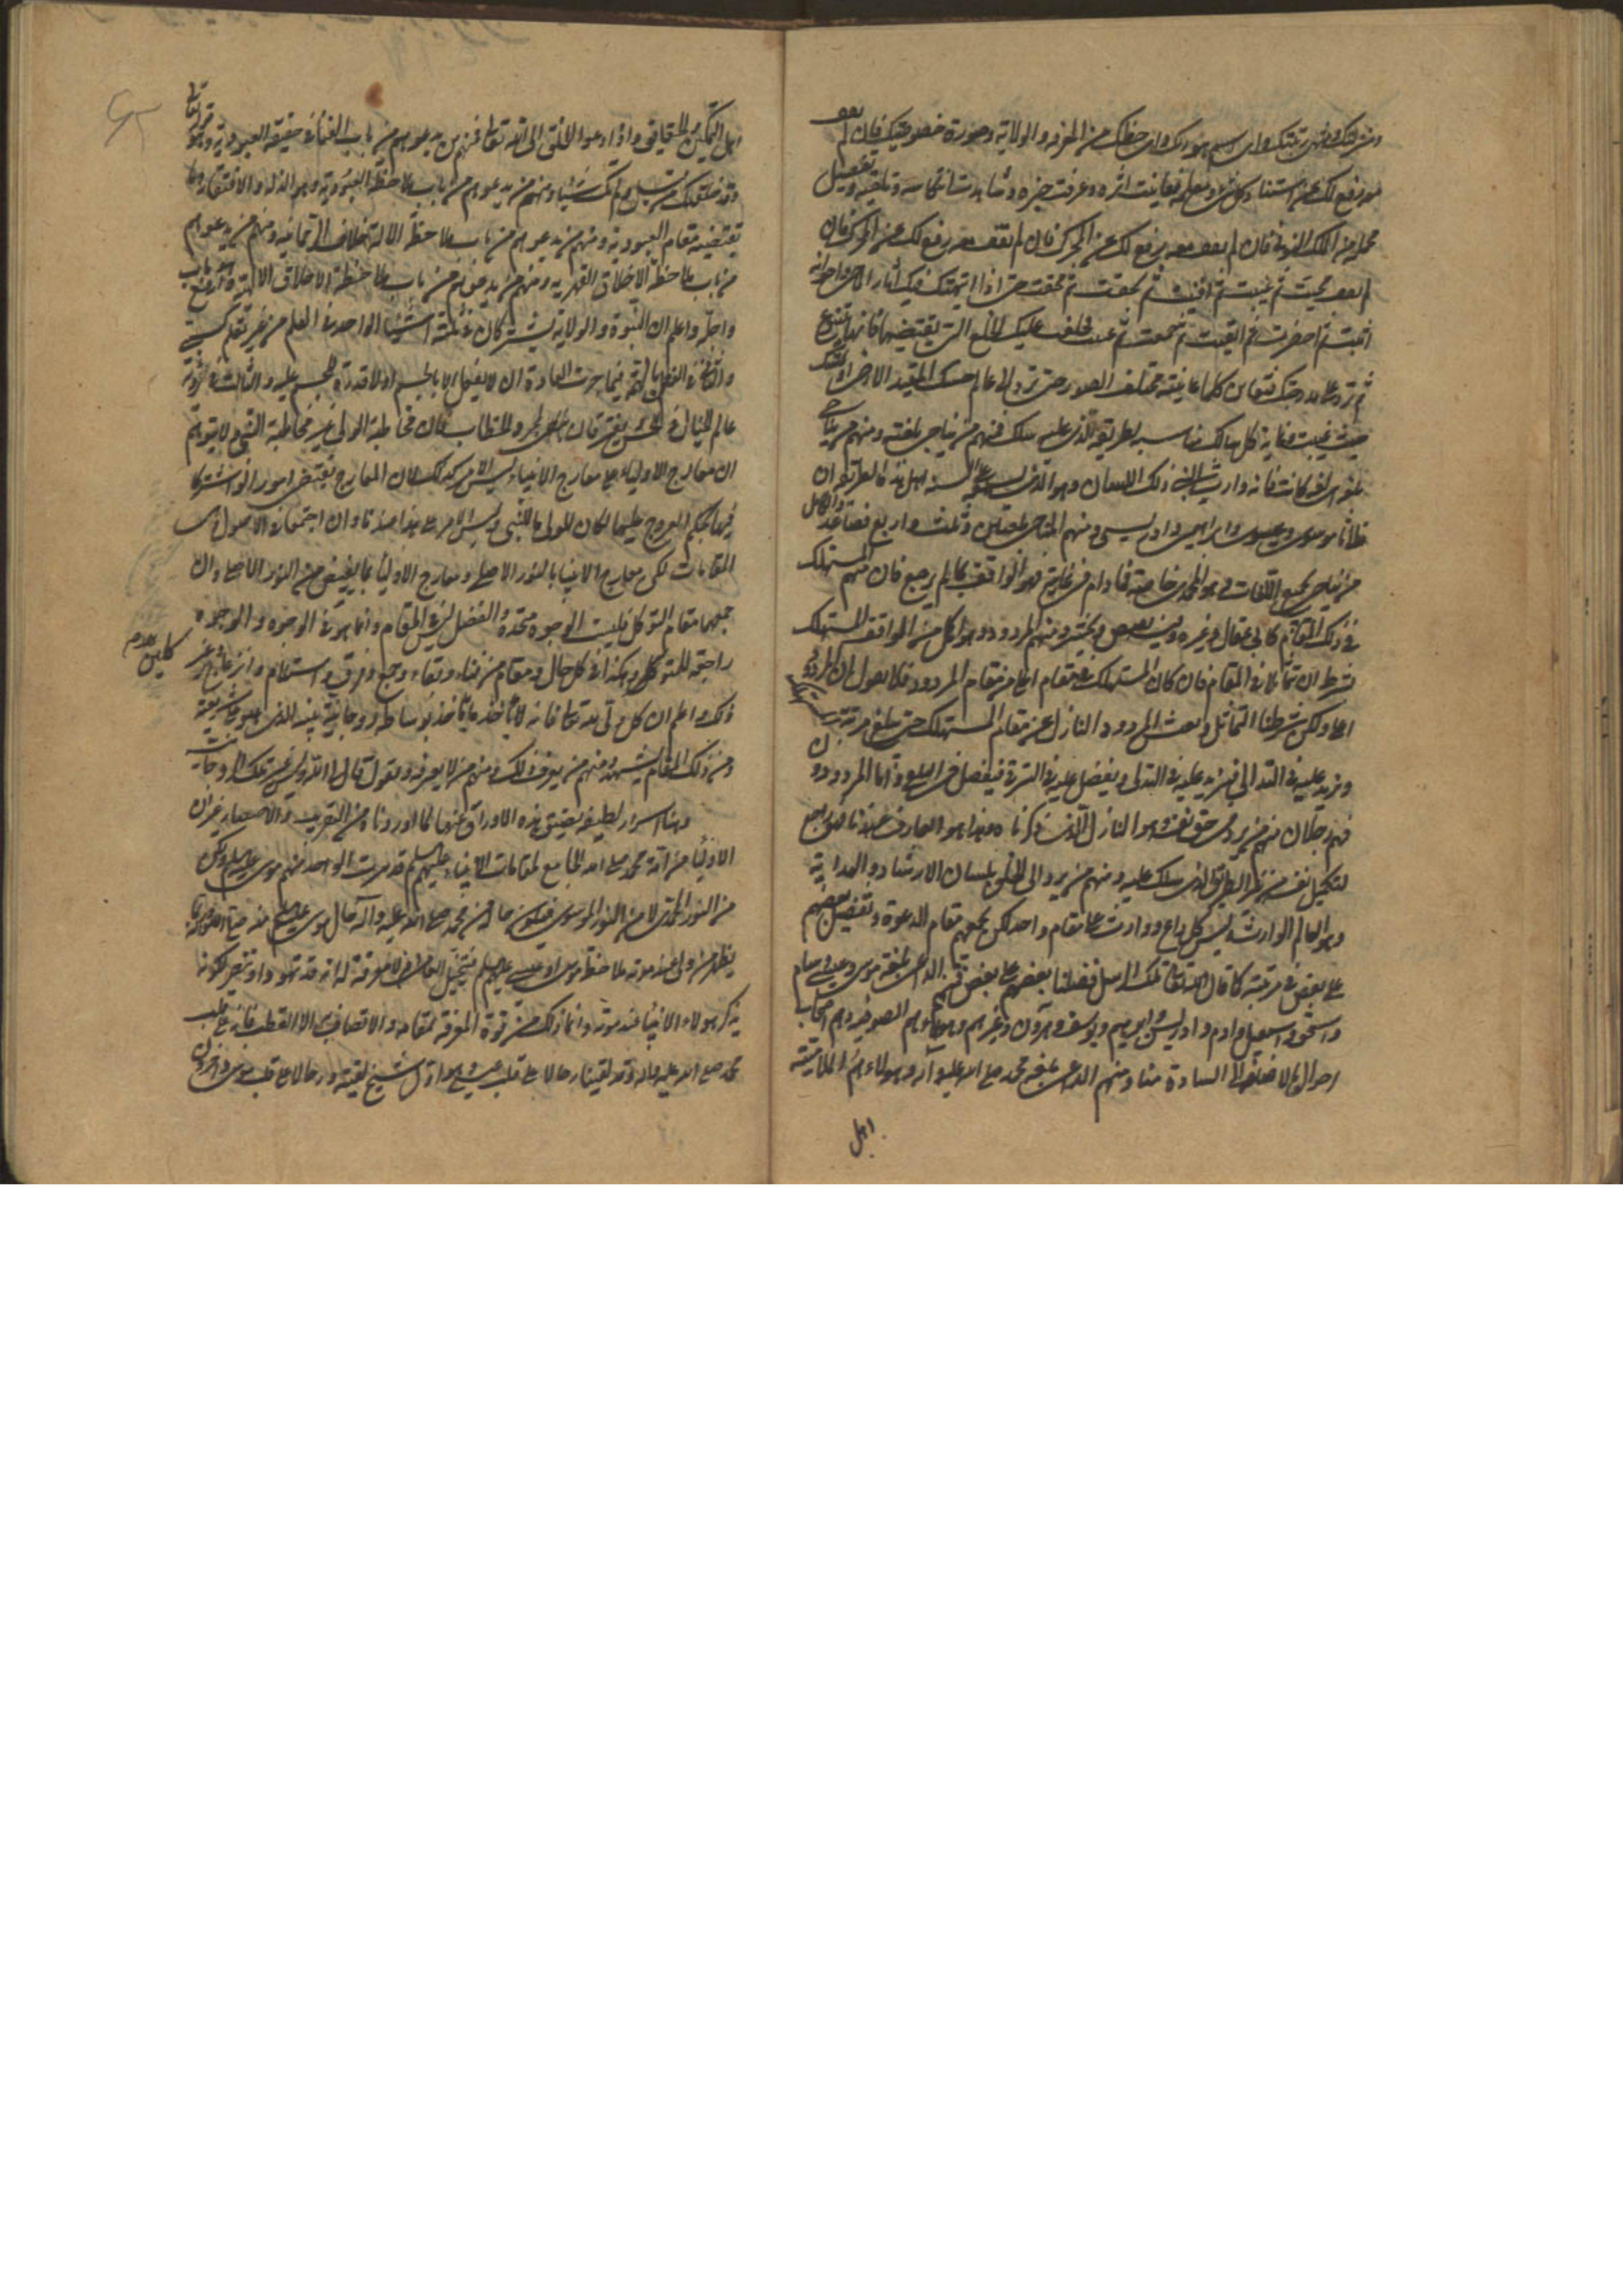 ومنزلتك ومنتهى رتبتك واى اسم هو ربك واى حظك من المعرفة والولاية وصورة خصوصيتك فان لم تقف
معه رفع لك عن استناد كل شئ ومعلمه فعاينت اثره وعرفت خبره وشاهدت انتكاسه وتلقيه وتفصيل
مجمله من الملك النونى فان لم تقف معه رفع لك عن المحرك فان لم تقف معه رفع لك عن المحرك فان
لم تقف محيت ثم غيبت ثم افنيت ثم سحقت ثم محقت حتى اذا انتهت فيك آثار المحو واخواته
اثبت ثم احضرت ثم ابقيت ثم جمعت ثم عينت فخلعت عليك الخلع التى تقتضيها فانها تتنوع
ثم ترد على مدرجتك فتعاين كلما عاينته مختلف الصور حتى ترد الى عالم حسك المقيد الارضى او تمسك
حيث غيبت وغاية كل سالك مناسبة لطريقه الذى عليه سلك فمنهم من يناجى بلغته ومنهم من يناجى
بغير لغته كانت فانه وارث لنبى ذلك اللسان وهو الذى تسمعه على السنة اهل هذه الطريقة ان
فلانا موسوى وعيسوى وابراهيمى وادريسى ومنهم المناجى بلغتين وثلث واربع فصاعدا والكامل
من يناجى بجميع اللغات وهو المحمدى خاصة فما دام فى غايته فهو الواقف ما لم يرجع فان منهم المستهلك
فى ذلك المقام كابى عقال وغيره وفيه يقبض ويحشر ومنهم المردود وهو اكمل من الواقف المستهلك
بشرط ان يتماثلا فى المقام فان كان المستهلك فى مقام اعلى من مقام المردود فلا نقول ان المردود
اعلى ولكن شرطنا التماثل ويعيش المردود النازل عن مقام المستهلك حتى يبلغ مرتبته
ويزيد عليه فى التدانى فيزيد عليه فى التدلى ويفضل عليه فى الترقى فيفضل فى التلقى واما المردودون
فهم رجلان منهم من يرد فى حق نفسه وهو النازل الذى ذكرناه وهذا هو العارف عندنا فهو راجع
لتكميل نفسه من غير الطريق الذى سلك عليه ومنهم من يرد الى الخلق بلسان الارشاد والهداية
وهو العالم الوارث وليس كل داع ووارث على مقام واحد لكن يجمعهم مقام الدعوة وتفضل بعضهم
على بعض فى مرتبته كما قال الله تعالى تلك الرسل فضلنا بعضهم على بعض فمنهم الداعى بلغة موسى وعيسى وسام
واسحق واسمعيل وادم وادريس وابرهيم ويوسف وهرون وغيرهم وهؤلاء هم الصوفية وهم اصحاب
احوال بالاضافة الى السادة منا ومنهم الداعى بلغة محمد صلى الله عليه وآله وهؤلاء هم الملامتية
اهل
اهل التمكين والحقايق واذا دعوا الخلق الى الله تعالى فمنهم من يدعوهم من باب الفناء فى حقيقة العبودية وهو قوله تعالى
وقد خلقتك من قبل ولم تك شيئا ومنهم من يدعوهم من باب ملاحظة العبودية وهو الذلة والافتقار وما
تقتضيه مقام العبودية ومنهم من يدعوهم من باب ملاحظة الاخلاق الرحمانية ومنهم من يدعوهم
من باب ملاحظة الاخلاق القهرية ومنهم من يدعوهم من باب ملاحظة الاخلاق الالهية وهو ارفع باب
واجله واعلم ان النبوة والولاية يشتركان فى ثلثة اشياء الواحد فى العلم من غير تعلم كسبى
والثانى فى الفعل بالهمة فيما جرت العادة ان لا يفعل الا بالجسم او لا قدرة للجسم عليه والثالث فى رؤية
عالم الخيال فى الحس ويفترقان بمجرد الخطاب فان مخاطبة الولى غير مخاطبة النبى ولا يتوهم
ان معارج الاولياء على معارج الانبياء ليس الامر كذلك لان المعارج تقتضى امورا لو اشتركا
فيها بحكم العروج عليها لكان للولى ما للنبى وليس الامر على هذا عندنا وان اجتمعا فى الاصول وهى
المقامات لكن معارج الانبياء بالنور الاصلى ومعارج الاولياء بما يفيض من النور الاصلى وان
جمعهما مقام التوكل فليست الوجوه متحدة والفضل ليس فى المقام وانما هو فى الوجوه والوجوه
راجعة للمتوكلين وهكذا فى كل حال ومقام من فناء وبقاء وجمع وفرق واصطلام وانزعاج وغير
ذلك واعلم ان كل ولى لله تعالى فانه يأخذ ما يأخذ بواسطة روحانية نبيه الذى هو على شريعته
ومن ذلك المقام يشهد فمنهم من يعرف ذلك ومنهم من لا يعرفه ويقول قال لى الله وليس غير تلك الروحانية
وهنا اسرار لطيفة تضيق هذه الاوراق عنها لما اوردناه من التقريب والاختصار غير ان
الاولياء من امة محمد صلى الله الجامع لمقامات الانبياء عليهم السلام قد يرث الواحد منهم موسى عليه السلم ولكن
من النور المحمدى لا من النور الموسوى فيكون حاله من محمد صلى الله عليه وآله حال موسى عليه السلم منه صلى الله عليه وآله
يظهر من ولى عند موته ملاحظة موسى او عيسى عليهما السلم فيتخيل العامى ومن لا معرفة له انه قد تهود او تنصر لكونه
يذكر هؤلاء الانبياء عند موته وانما ذلك من قوة المعرفة بمقامه والاتصاف به الا القطب فانه على قلب
محمد صلى الله عليه وآله وقد لقينا رجالا على قلب عيسى وهو اول شيخ لقيته ورجالا على قلب موسى وآخرون